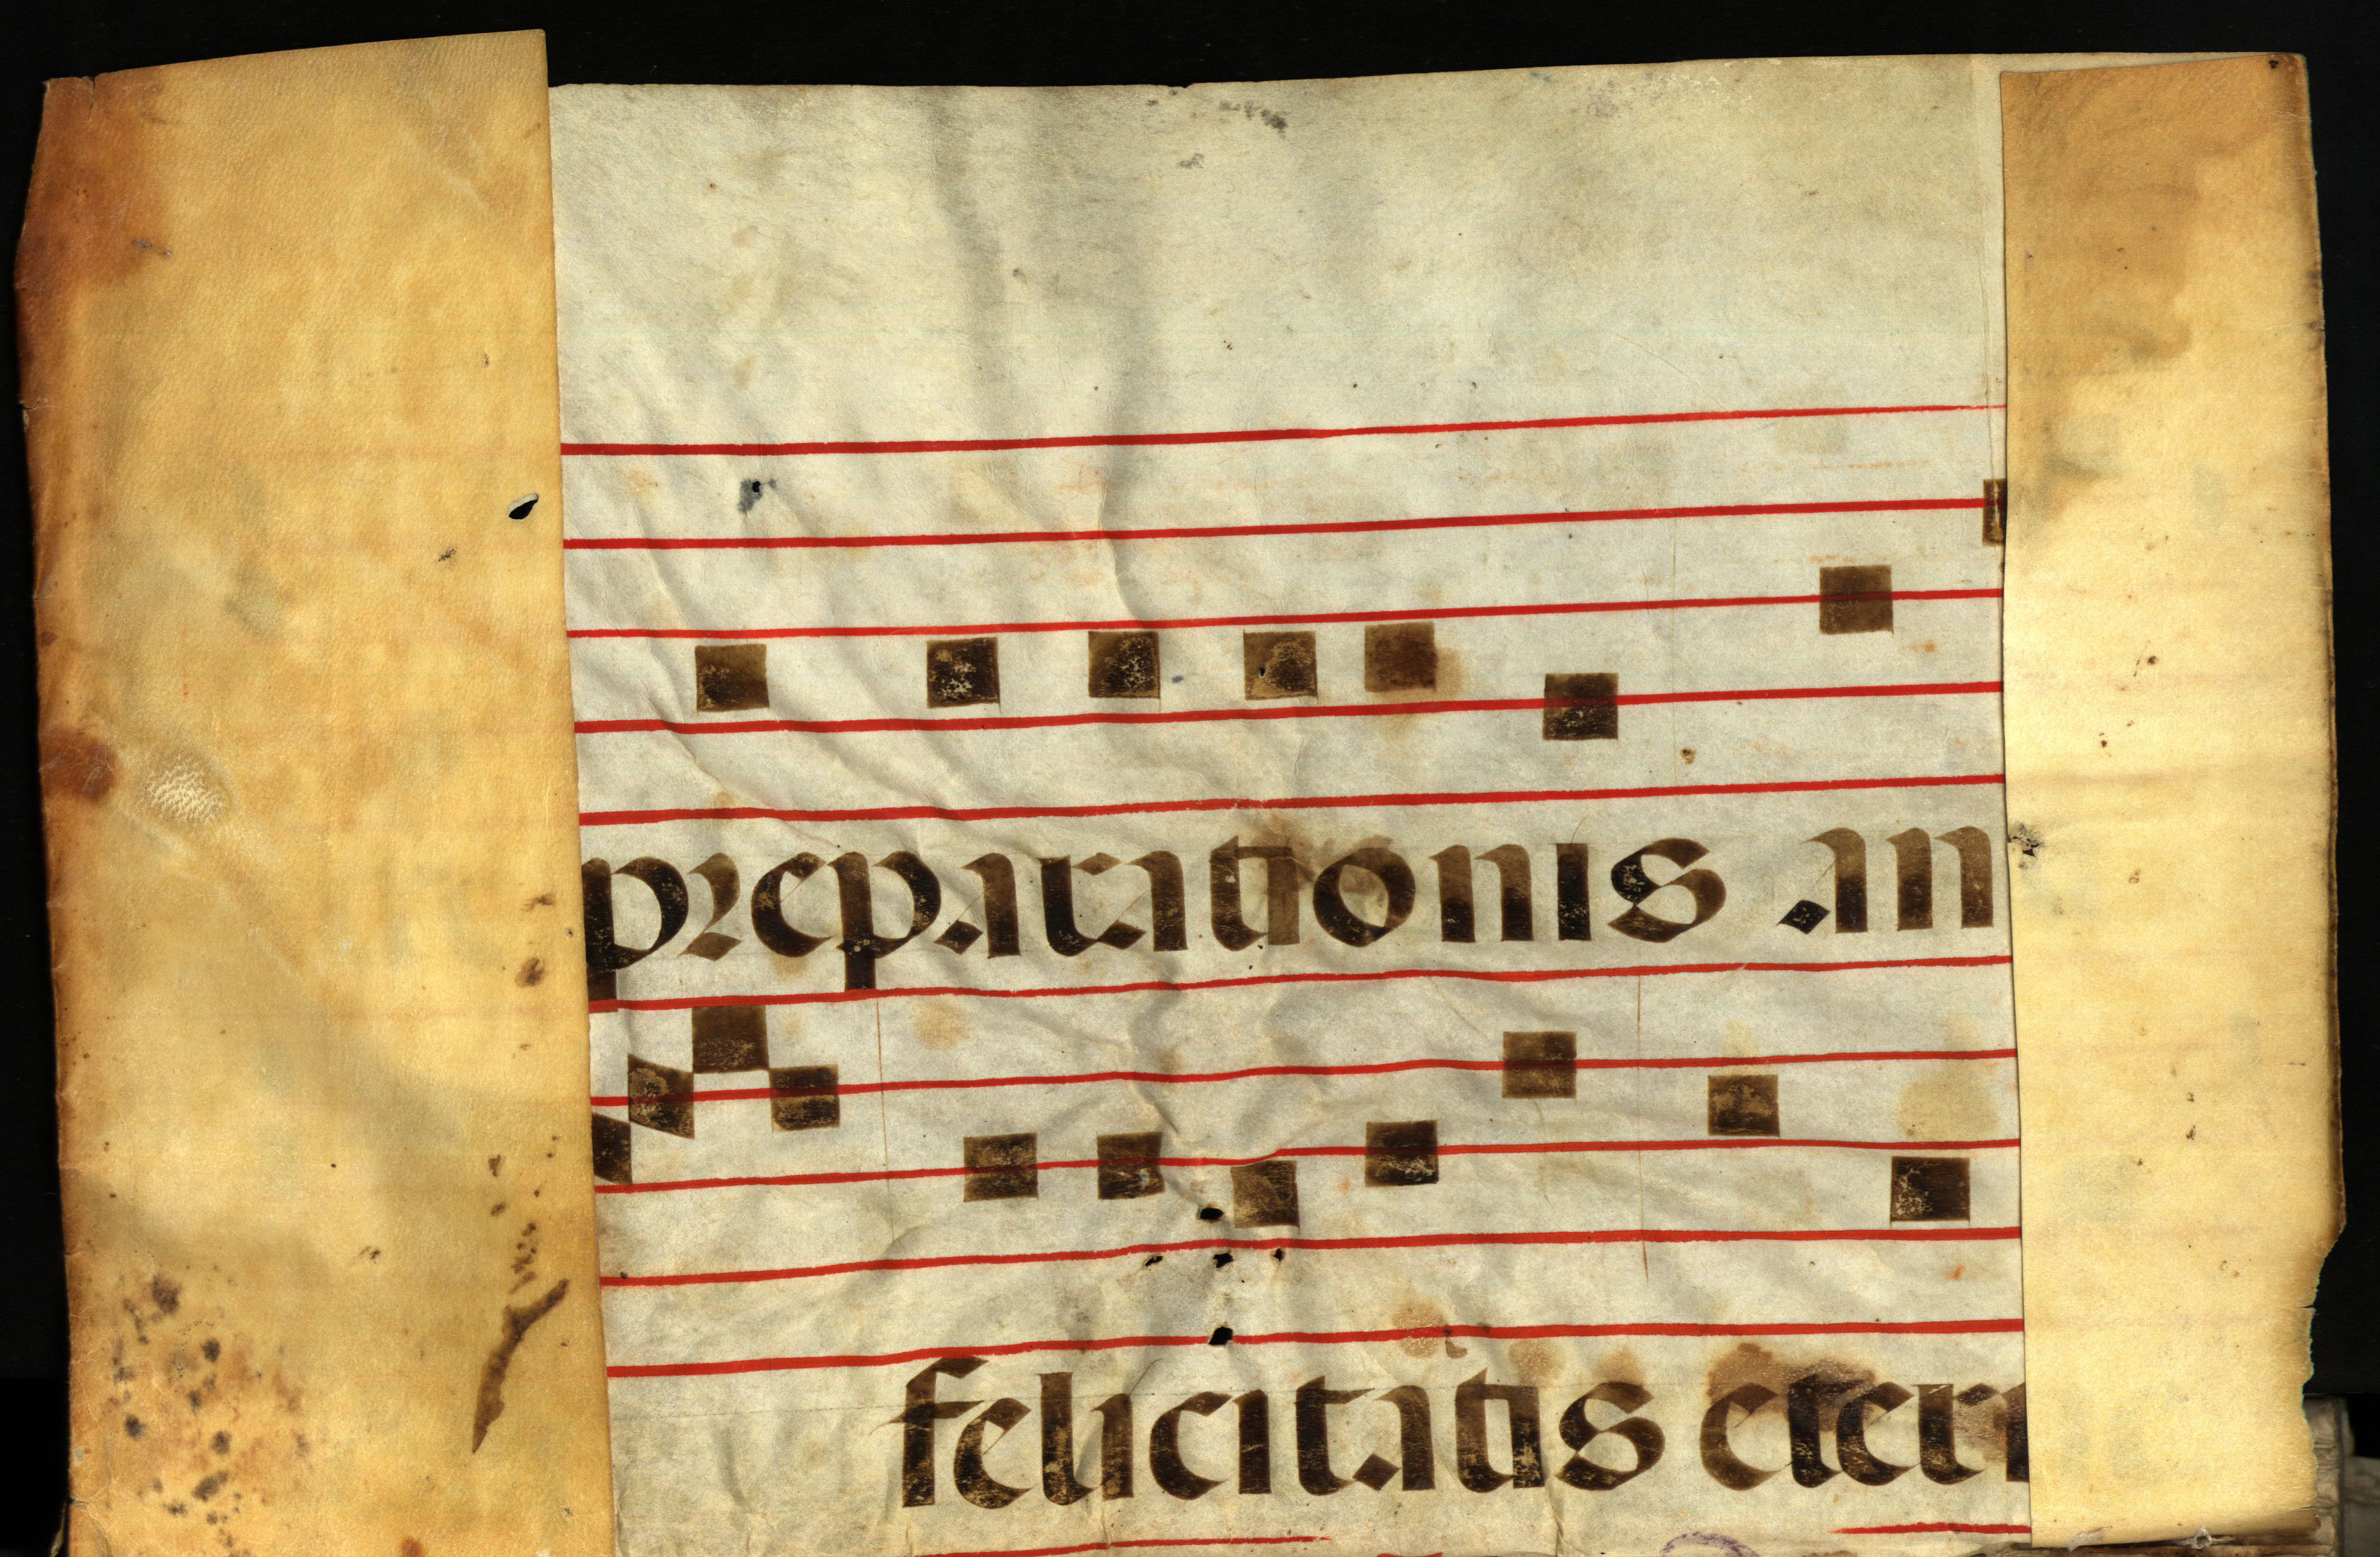 preparationis an
felicitatis etern